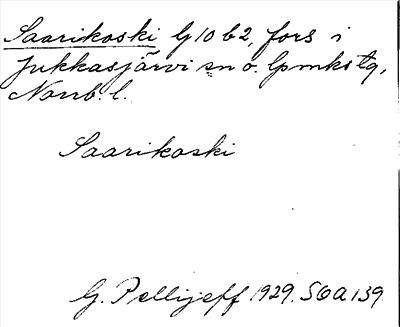 Saarikoski G10b2, fors i
Jukkasjärvi sn o. lpmkstg,
Norrb. l.
Saarikoski
G. Pellijeff 1929. SOA 139